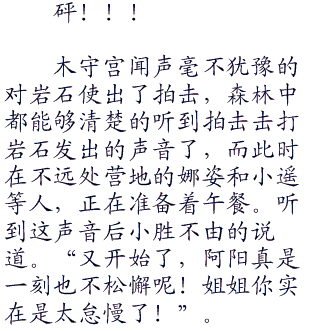 砰！！！
木守宫闻声毫不犹豫的
对岩石使出了拍击，森林中
都能够清楚的听到拍击击打
岩石发出的声音了，而此时
在不远处营地的娜姿和小遥
等人，正在准备着午餐。听
到这声音后小胜不由的说
道。“又开始了，阿阳真是
一刻也不松懈呢！姐姐你实
在是太怠慢了！”。